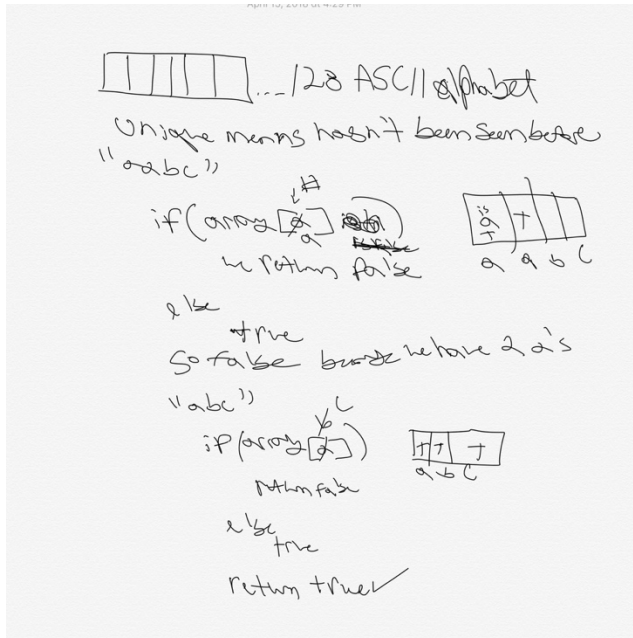 April 15, 2018 at 4:29 PM
... 128 ASCII alphabet
Unique means hasn't been seen before
"aabc"
#
if(array[a]
a
we return false
is a T T
a a b c
else
true
So false we have 2 a's
"abc"
b c
if(array[a])
T T T
a b c
return false
else
true
return true✓